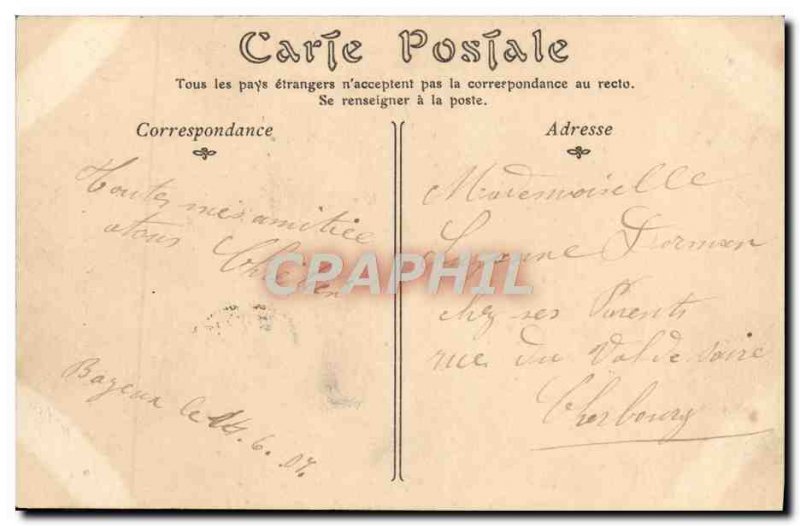 Carte Postale
Tous les pays étrangers n'acceptent pas la correspondance au recto.
Se renseigner à la poste.
Correspondance
Toutes mes amitiée
atous
Bayeux le 14.6.07.
Adresse
Mademoiselle
chez ses Parents
rue du Val de Saire
Cherbourg
CPAPHIL